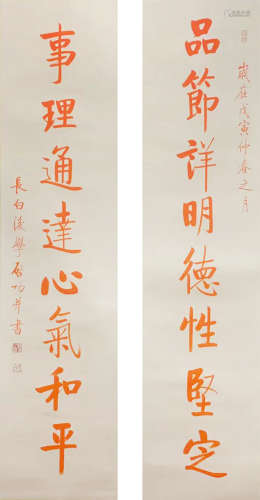 歲在戊寅仲春之月
品節詳明德性堅定
事理通達心氣和平
長白後學启功并書